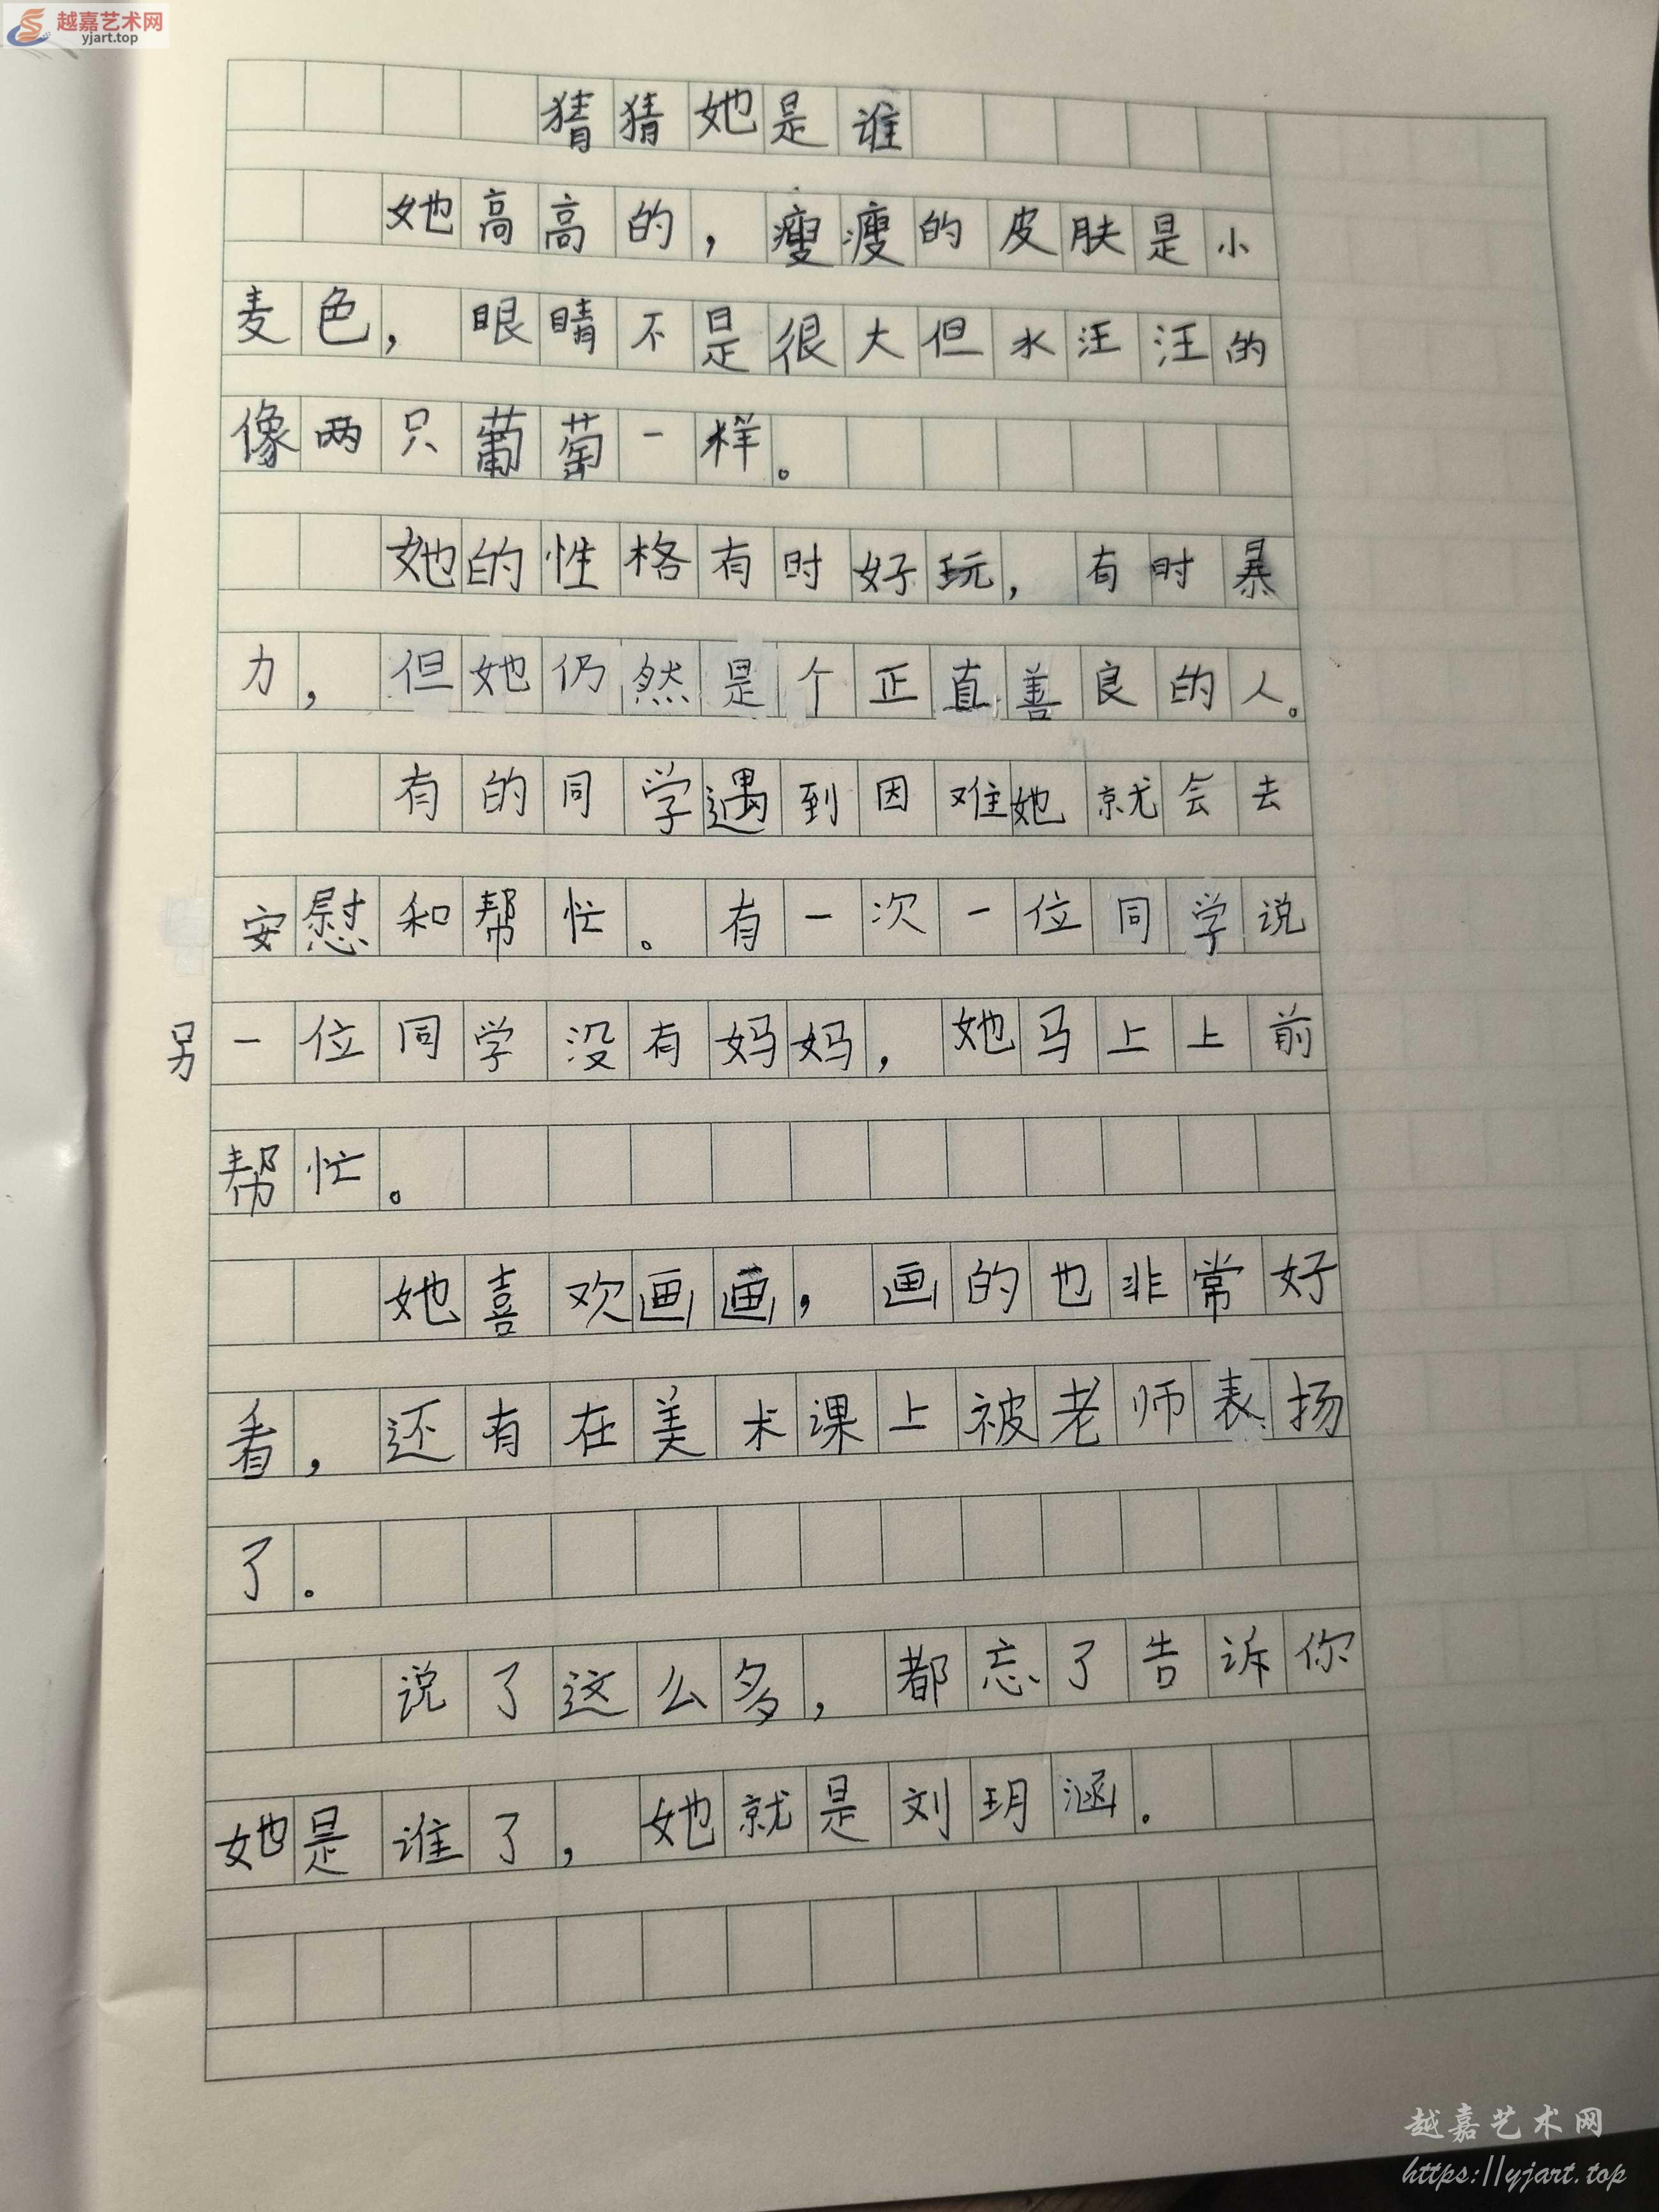 越嘉艺术网
yjart.top
猜猜她是谁
她高高的，瘦瘦的皮肤是小
麦色，眼睛不是很大但水汪汪的
像两只葡萄一样。
她的性格有时好玩，有时暴
力，但她仍然是个正直善良的人。
有的同学遇到因难她就会去
安慰和帮忙。有一次一位同学说
另一位同学没有妈妈，她马上上前
帮忙。
她喜欢画画，画的也非常好
看，还有在美术课上被老师表扬
了。
说了这么多，都忘了告诉你
她是谁了，她就是刘玥涵.
越嘉艺术网
https://yjart.top